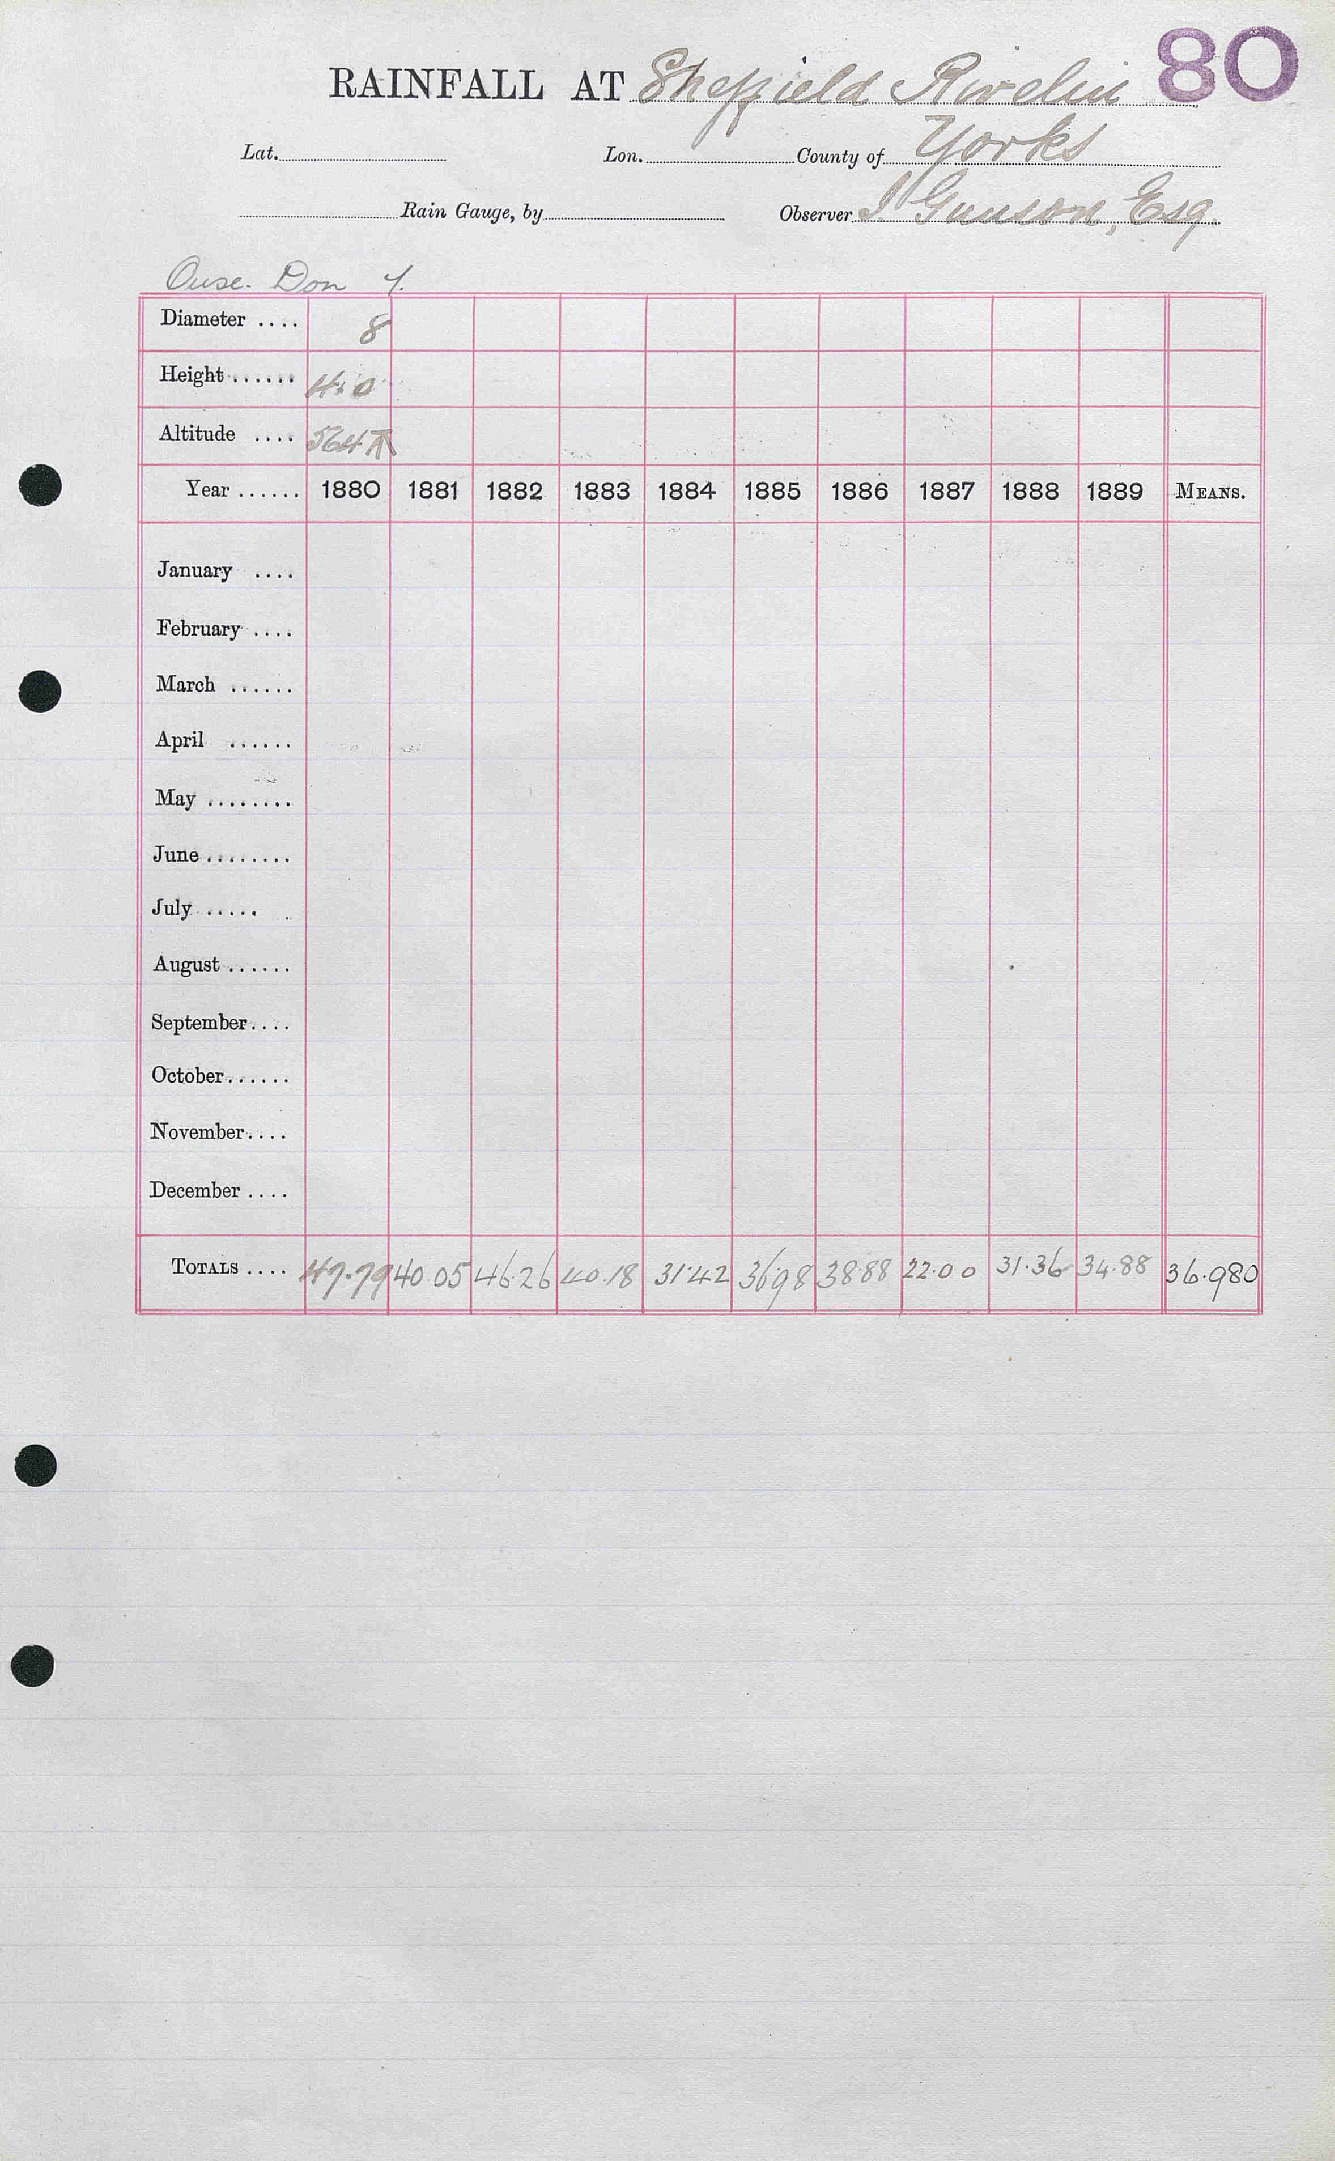 80
RAINFALL AT Sheffield Rivelin
Lat. Lon. County of Yorks
Rain Gauge, by Observer J Gunson, Esq.
Ouse. Don
Diameter .... 8
Height ...... 4.0
Altitude .... 564
Year ...... 1880 1881 1882 1883 1884 1885 1886 1887 1888 1889 MEANS.
January ....
February ....
March ......
April ......
May ........
June ........
July .....
August ......
September ....
October ......
November ....
December ....
TOTALS .... 47.79 40.05 46.26 40.18 31.42 36.98 38.88 22.00 31.36 34.88 36.980